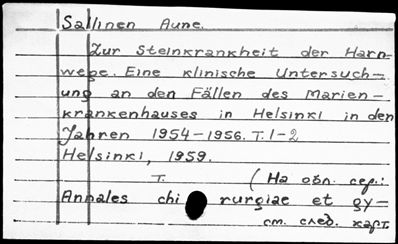 Sallinen Aune.
Zur Steinkrankheit der Harn-
wege. Eine klinische Untersuch-
ung an den Fällen des Marien-
krankenhauses in Helsinki in den
Jahren 1954-1956. T. 1-2
Helsinki, 1959.
T. (На обл. сер.:
Annales chirurgiae et gy-
см. след. карт.